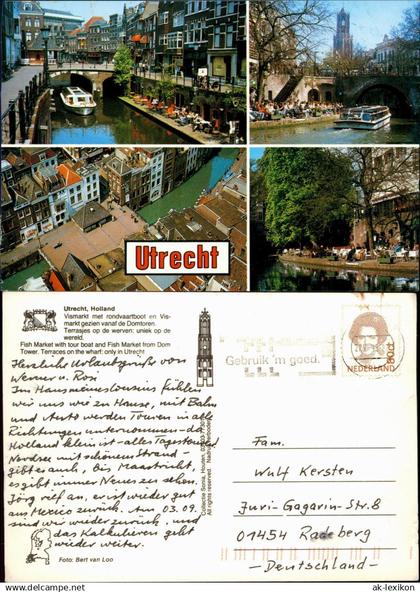 Utrecht
Utrecht, Holland
Vismarkt met rondvaartboot en Vis-
markt gezien vanaf de Domtoren.
Terrasjes op de werven: uniek op de
wereld.
Fish Market with tour boat and Fish Market from Dom
Tower. Terraces on the wharf: only in Utrecht
Herzliche Urlaubsgrüße von
Werner u. Rosi
Im Hausmeneslousins fühlen
wir uns wie zu Hause, mit Bahn
und Auto werden Touren in alle
Richtungen unternommen - da
Holland klein ist - alles Tagestouren
Nordsee mit schönem Strand -
gibt es auch, bis Maastricht,
es gibt immer Neues zu sehen.
Jörg rief an, er ist wieder gut
aus Mexico zurück. Am 03.09.
sind wir wieder zurück, und
das Kalkulieren geht
wieder weiter.
Foto: Bert van Loo
Collectie Sonia, Houten,
All rights reserved
Gebruik 'm goed.
NEDERLAND
80ct
Fam.
Wulf Kersten
Juri-Gagarin-Str. 8
01454 Radeberg
-Deutschland-
© ak-lexikon.com